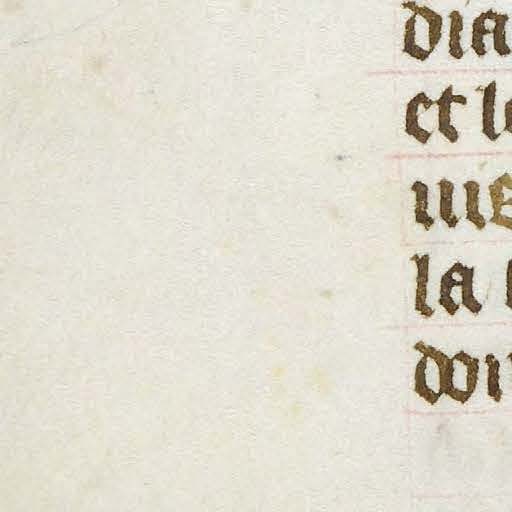 dia
et le
uie
la l
doi